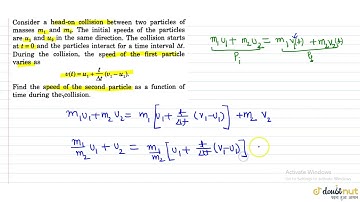 Consider a head-on collision between two particles of
masses m₁ and m₂. The initial speeds of the particles
are u₁ and u₂ in the same direction. The collision starts
at t = 0 and the particles interact for a time interval Δt.
During the collision, the speed of the first particle
varies as
v(t) = u₁ + t/Δt (v₁ − u₁).
Find the speed of the second particle as a function of
time during the collision.
m₁u₁ + m₂u₂ = m₁v₁(t) + m₂v₂(t)
P₁
m₁u₁ + m₂u₂ = m₁ [u₁ + t/Δt (v₁−u₁)] + m₂ v₂
m₁/m₂ u₁ + u₂ = m₁/m₂ [u₁ + t/Δt (v₁−u₁)]
Activate Windows
doubtnut